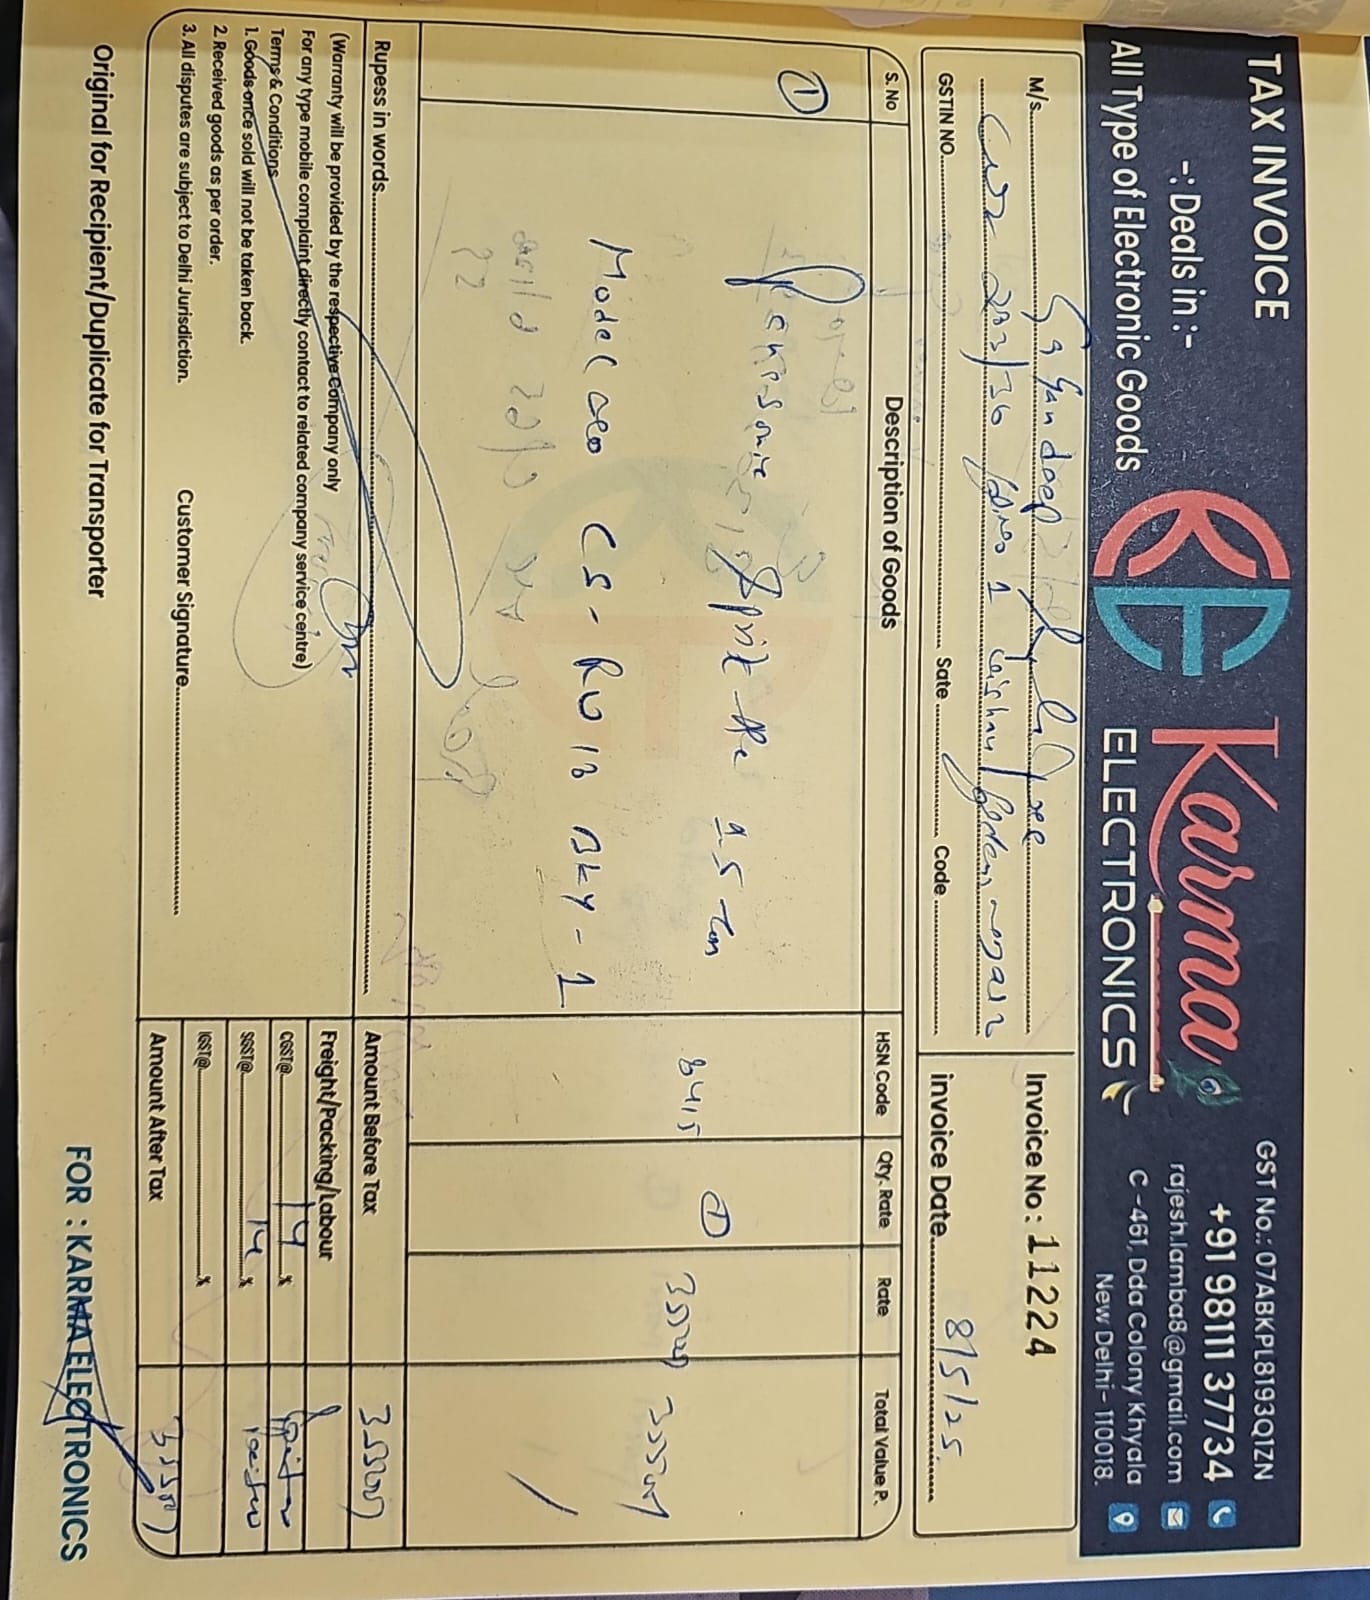 TAX INVOICE
-: Deals in :-
All Type of Electronic Goods
KE
Karma
ELECTRONICS
GST No.: 07ABKPL8193Q1ZN
+91 98111 37734
rajesh.lamba8@gmail.com
C-461, Dda Colony Khyala
New Delhi- 110018.
M/s. Gagandeep
GSTIN NO. Sate Code
Invoice No: 11224
invoice Date 8/5/25
S. No Description of Goods HSN Code Qty. Rate Rate Total Value P.
1 Split 1.5 ton 8415 1 35500 35500
Model CS-RU18 -1
Rupess in words
(Warranty will be provided by the respective Company only
For any type mobile complaint directly contact to related company service centre)
Terms & Conditions
1. Goods once sold will not be taken back.
2. Received goods as per order.
3. All disputes are subject to Delhi Jurisdiction.
Customer Signature
Amount Before Tax 35500
Freight/Packing/Labour
CGST@ 14 %
SGST@ 14 %
IGST@ %
Amount After Tax 35500
Original for Recipient/Duplicate for Transporter
FOR : KARMA ELECTRONICS